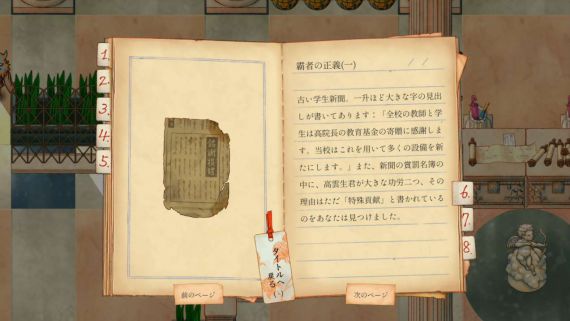 1.
2.
3.
4.
5.
覇者の正義(一)
古い学生新聞。一升ほど大きな字の見出
しが書いてあります：「全校の教師と学
生は高院長の教育基金の寄贈に感謝しま
す。当校はこれを用いて多くの設備を新
たにします。」また、新聞の賞罰名簿の
中に、高雲生君が大きな功労二つ、その
理由はただ「特殊貢献」と書かれている
のをあなたは見つけました。
6.
7.
8.
タイトルへ
戻る
前のページ
次のページ